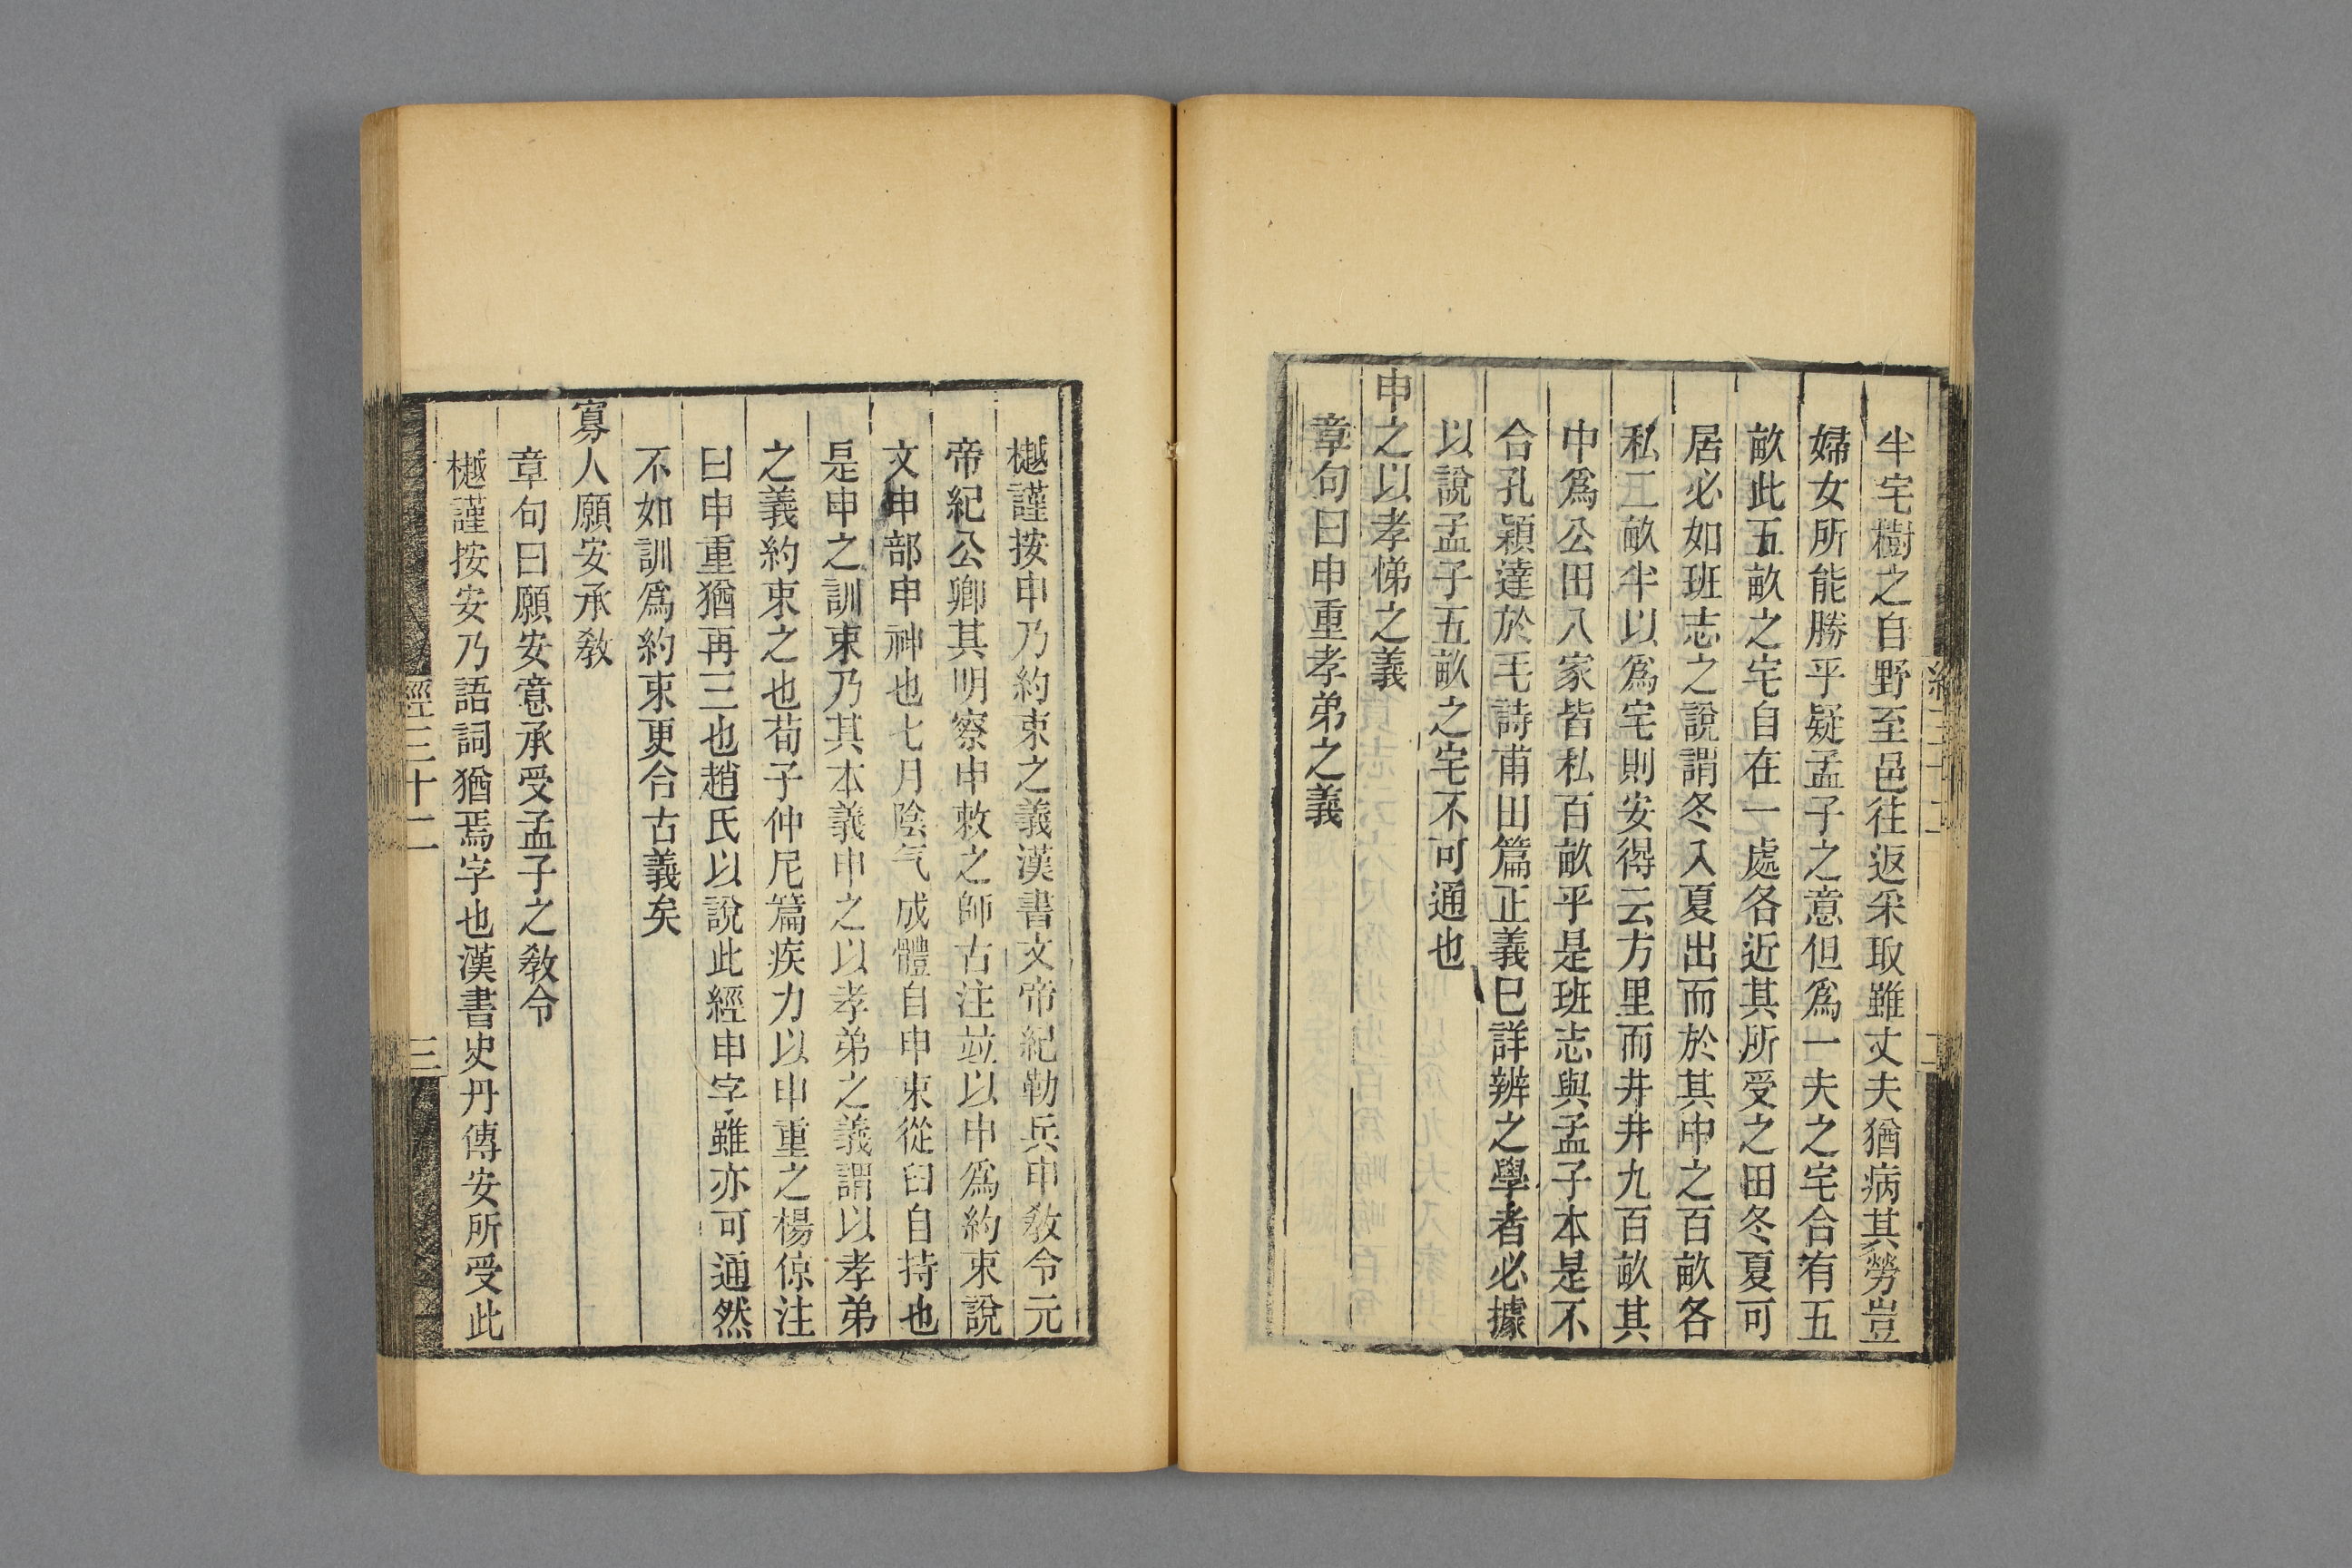 半宅樹之自野至邑往返采取雖丈夫猶病其勞豈
婦女所能勝乎疑孟子之意但爲一夫之宅合有五
畝此五畝之宅自在一處各近其所受之田冬夏可
居必如班志之說謂冬入夏出而於其中之百畝各
私二畝半以爲宅則安得云方里而井井九百畝其
中爲公田八家皆私百畝乎是班志與孟子本是不
合孔穎達於毛詩甫田篇正義已詳辨之學者必據
以說孟子五畝之宅不可通也
申之以孝悌之義
章句曰申重孝弟之義
樾謹按申乃約束之義漢書文帝紀勒兵申敎令元
帝紀公卿其明察申敕之師古注竝以申爲約束說
文申部申神也七月陰气成體自申束從臼自持也
是申之訓束乃其本義申之以孝弟之義謂以孝弟
之義約束之也荀子仲尼篇疾力以申重之楊倞注
曰申重猶再三也趙氏以說此經申字雖亦可通然
不如訓爲約束更合古義矣
寡人願安承敎
章句曰願安意承受孟子之敎令
樾謹按安乃語詞猶焉字也漢書史丹傳安所受此
經三十二
三